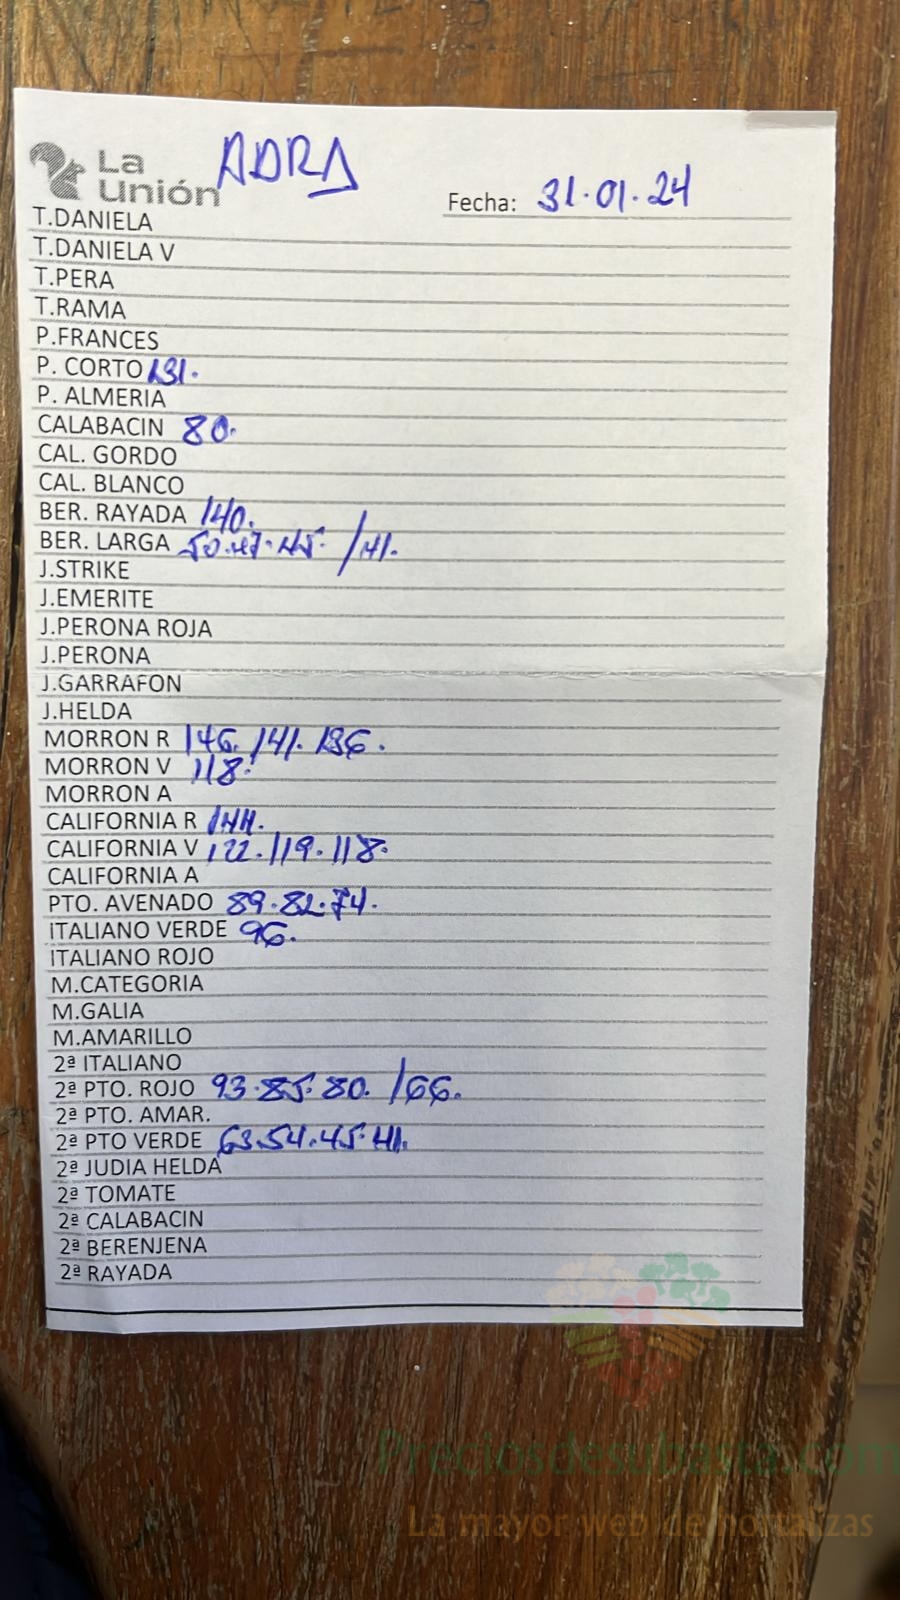 La Unión ADRA
Fecha: 31.01.24
T.DANIELA
T.DANIELA V
T.PERA
T.RAMA
P.FRANCES
P. CORTO 131.
P. ALMERIA
CALABACIN 80.
CAL. GORDO
CAL. BLANCO
BER. RAYADA 140.
BER. LARGA 50.47.45. /41.
J.STRIKE
J.EMERITE
J.PERONA ROJA
J.PERONA
J.GARRAFON
J.HELDA
MORRON R 146. 141. 136.
MORRON V 118.
MORRON A
CALIFORNIA R 144.
CALIFORNIA V 122.119.118.
CALIFORNIA A
PTO. AVENADO 89.82.74.
ITALIANO VERDE 96.
ITALIANO ROJO
M.CATEGORIA
M.GALIA
M.AMARILLO
2ª ITALIANO
2ª PTO. ROJO 93.85.80. /66.
2ª PTO. AMAR.
2ª PTO VERDE 63.54.45.41.
2ª JUDIA HELDA
2ª TOMATE
2ª CALABACIN
2ª BERENJENA
2ª RAYADA
Preciosdesubasta.com
La mayor web de hortalizas